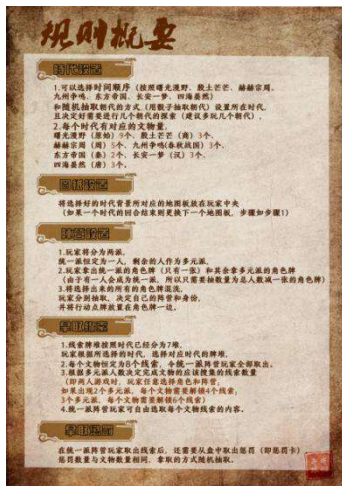 规则概要
时代设置
1.可以选择时间顺序（按照曙光漫野、殷土芒芒、赫赫宗周、
九州争鸣、东方帝国、长安一梦、四海晏然）
和随机抽取朝代的方式（用骰子抽取朝代）设置所在时代，
且决定好需要进行几个朝代的探索（建议多玩几个朝代）。
2.每个时代有对应的文物量，
曙光漫野（原始）9个、殷土芒芒（商）3个、
赫赫宗周（周）5个、九州争鸣(春秋战国）3个、
东方帝国（秦）2个、长安一梦（汉）3个、
四海晏然（唐）3个。
将选择好的时代背景所对应的地图板放在玩家中央
（如果一个时代的回合结束则更换下一个地图板，步骤如步骤1）
阵营设置
1.玩家将分为两派，
统一派恒定为一人，剩余的人作为多元派。
2.玩家拿出统一派的角色牌（只有一张）和其余拿多元派的角色牌
（由于有一人会成为统一派，所以只需要抽数量为总人数减一张的角色牌）
3.将选择出来的所有的角色牌混洗，
玩家分别抽取，决定自己的阵营和身份，
并将行动点牌放置在角色牌一边。
拿取线索
1.线索牌堆按照时代已经分为7堆，
玩家根据所选择的时代，选择对应时代的牌堆。
2.每个文物恒定为8个线索，令统一派阵营玩家全部取出。
3.根据多元派人数决定完成文物的应该搜集的线索数量
（即两人游戏时，玩家任意选择角色和阵营；
如果出现2个多元派，每个文物需要解锁4个线索；
3个多元派，每个文物需要解锁6个线索）
4.统一派阵营玩家可自由选取每个文物线索的内容。
拿取惩罚
在统一派阵营玩家取出线索后，还需要从盒中取出惩罚（即惩罚卡），
惩罚数量与文物数量相同，拿取的方式随机抽取。